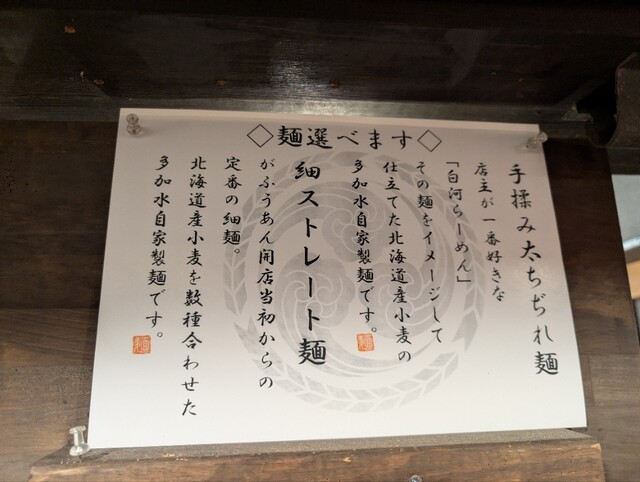 ◇麺選べます◇
手揉み太ちぢれ麺
店主が一番好きな
「白河らーめん」
その麺をイメージして
仕立てた北海道産小麦の
多加水自家製麺です。
麺
細ストレート麺
がふうあん開店当初からの
定番の細麺。
北海道産小麦を数種合わせた
多加水自家製麺です。
麺